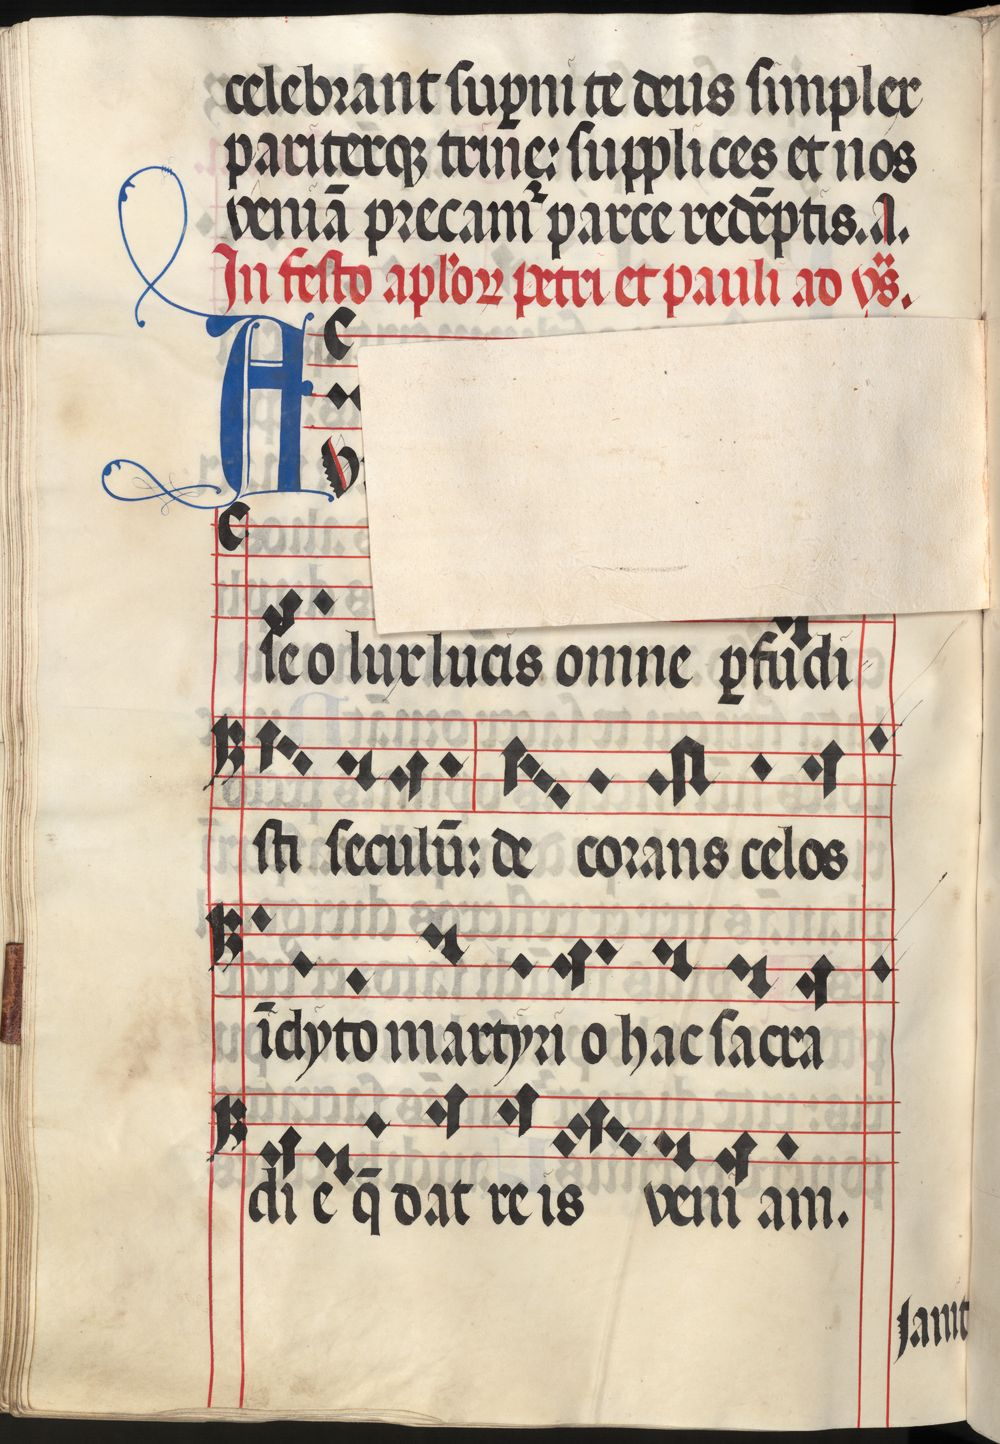 celebrant suꝑni te deus simplex
pariterq̄ꝫ trine: supplices et nos
veniā precamᷣ parce redēptis. A.
In festo apl'oꝝ petri et pauli ad vs̈.
A
se o lux lucis omne ꝑfudi
sti seculū: de corans celos
īclyto martyri o hac sacra
di e q̄ dat re is veni am.
Janit